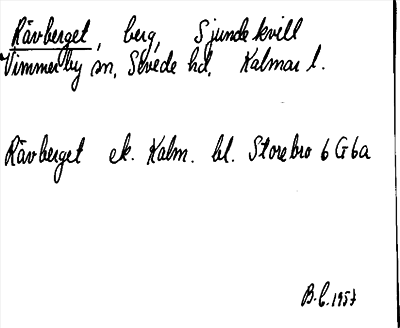 Rävberget, berg, Sjundekvill
Vimmerby sn, Sevede hd, Kalmar l.
Rävberget ek. Kalm. bl. Storebro 6 G 6a
B.C. 1957